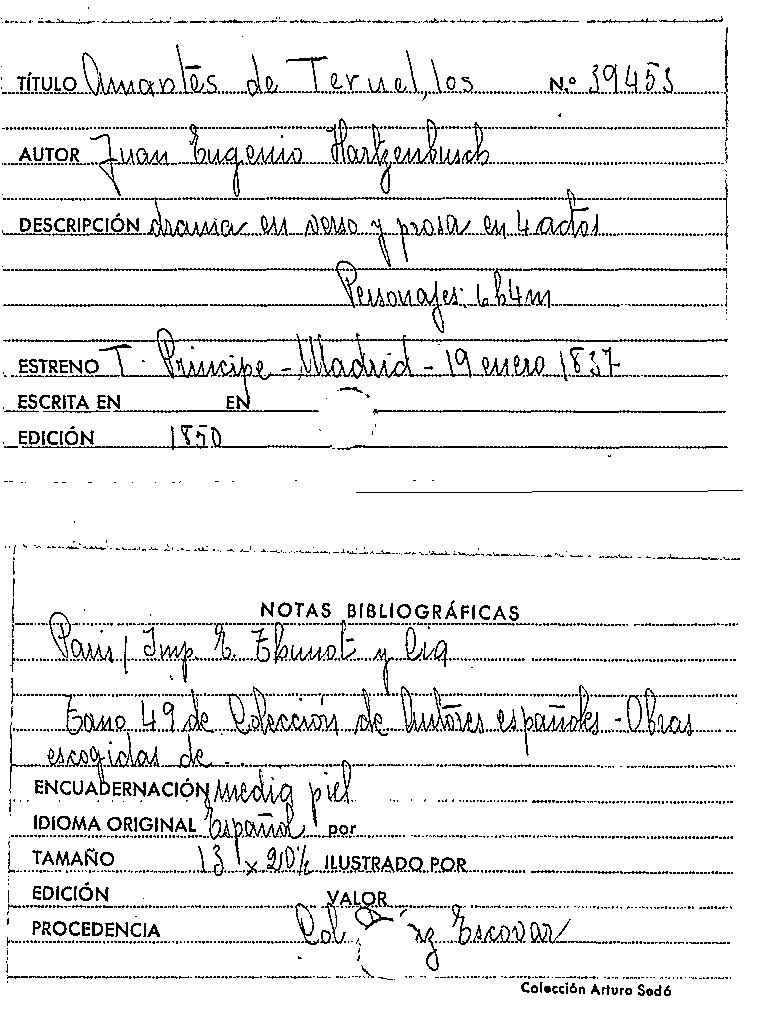 TÍTULO Amantes de Teruel, los N.º 39453
AUTOR Juan Eugenio Hartzenbusch
DESCRIPCIÓN drama en verso y prosa en 4 actos
Personajes: 6h4m
ESTRENO T. Principe - Madrid - 19 enero 1837
ESCRITA EN EN
EDICIÓN 1850
NOTAS BIBLIOGRÁFICAS
Paris / Imp. E. Thunot y Cia
Tomo 49 de Colección de Autores españoles - Obras
escogidas de ..
ENCUADERNACIÓN media piel
IDIOMA ORIGINAL Español por
TAMAÑO 13 x 20½ ILUSTRADO POR
EDICIÓN VALOR
PROCEDENCIA Col Escovar
Colección Arturo Sedó